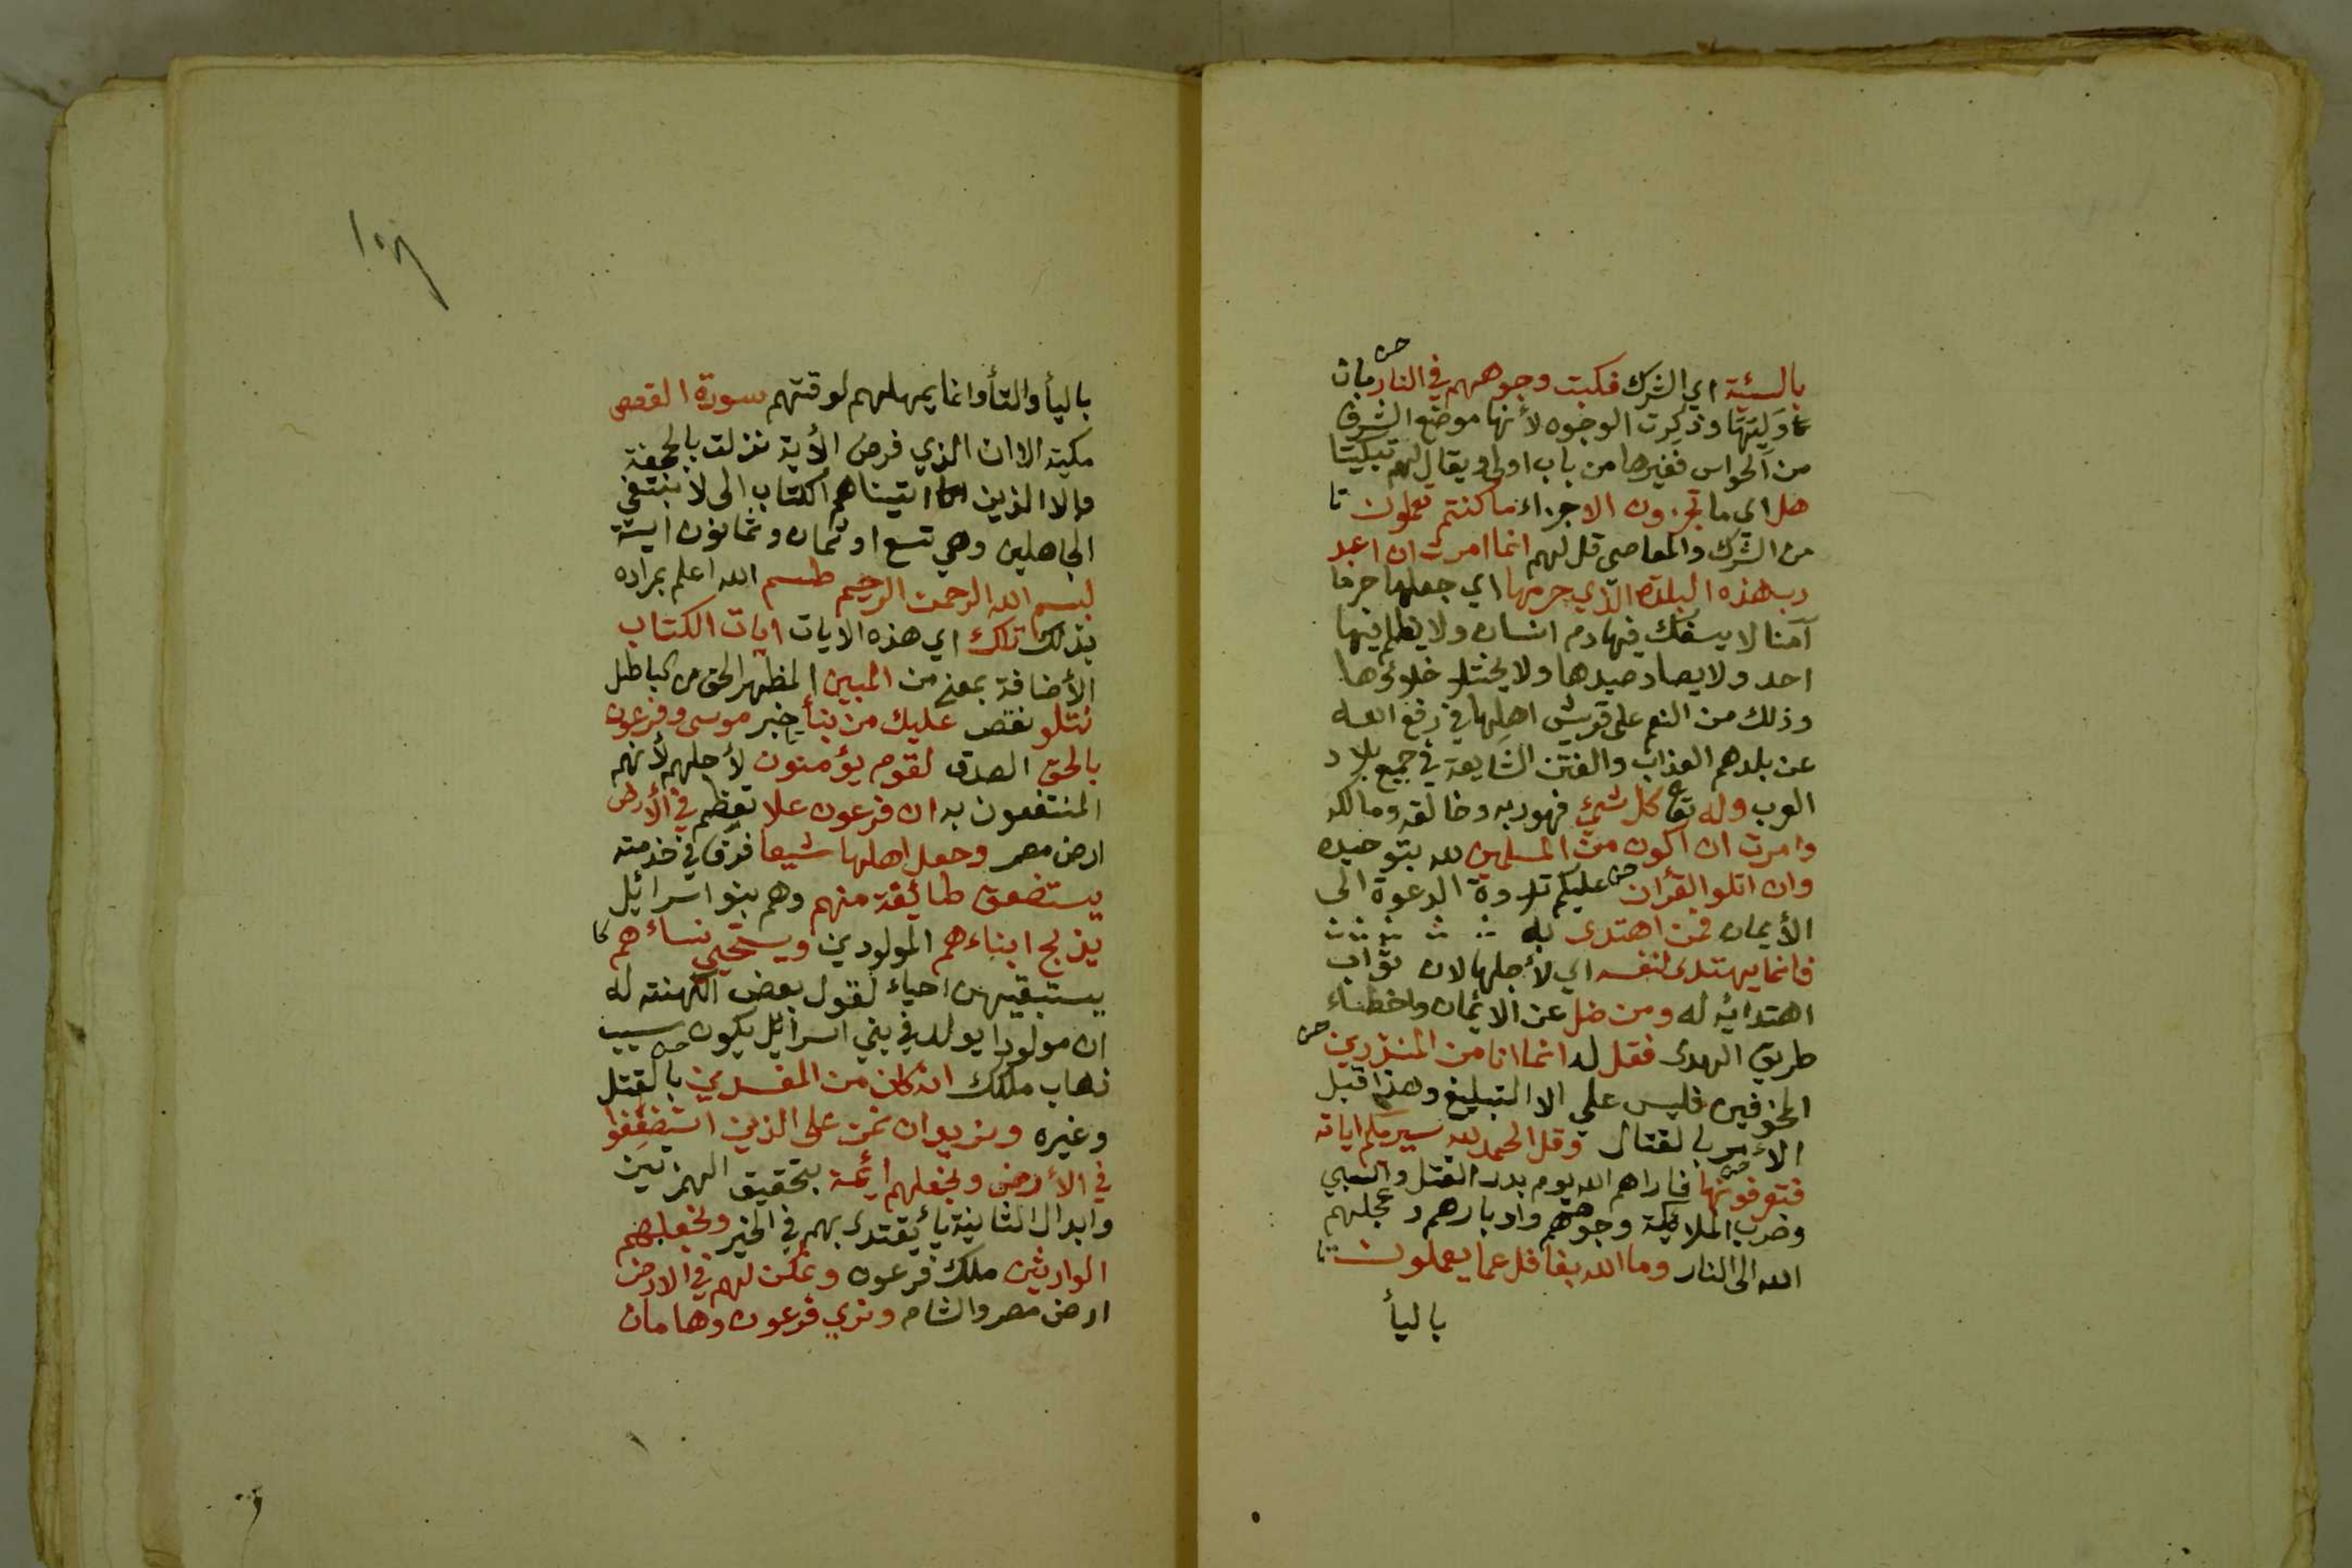 بالسيئة اي الشرك فكبت وجوههم في النار بان
وليتها وذكرت الوجوه لأنها موضع الشرف
من الحواس فغيرها من باب اولى ويقال لهم تبكيتا
هل اي ما تجزون الا جزاء ما كنتم تعملون
من الشرك والمعاصى قل لهم انما امرت ان اعبد
رب هذه البلدة الذي حرمها اي جعلها حرما
آمنا لا يسفك فيها دم انسان ولا يظلم فيها
احد ولا يصاد صيدها ولا يختلا خلاؤها
وذلك من النعم على قريش اهلها في رفع الله
عن بلدهم العذاب والفتن الشايعة في جميع بلاد
العرب وله تعا كل شيئ فهو ربه وخالقه ومالكه
وامرت ان اكون من المسلمين لله بتوحيده
وان اتلو القرأن عليكم تلاوة الدعوة الى
الأيمان فمن اهتدى له
فانما يهتدى لنفسه اي لأجلها لان ثواب
اهتدائه له ومن ضل عن الايمان واخطاء
طريق الهدى فقل له انما انا من المنذرين
المخوفين فليس علي الا التبليغ وهذا قبل
الأمر بالقتال وقل الحمد لله سيريكم اياته
فتعرفونها فاراهم الله يوم بدر القتل والسبي
وضرب الملائكة وجوههم وادبارهم وعجلهم
الله الى النار وما الله بغافل عما يعملون
باليأ
١٥٨
باليأ والتأ وانما يمهلهم لوقتهم سورة القصص
مكية الا ان الذي فرض الأية نزلت بالجحفة
والا الذين اتيناهم الكتاب الى لا نبتغي
الجاهلين وهي تسع او ثمان وثمانون اية
بسم الله الرحمن الرحيم طسم الله اعلم بمراده
بذلك تلك اي هذه الايات ايات الكتاب
الأضافة بمعنى من المبين المظهر الحق من الباطل
نتلو نقص عليك من نبأ خبر موسى وفرعون
بالحق الصدق لقوم يؤمنون لأجلهم لأنهم
المنتفعون به ان فرعون علا تعظم في الأرض
ارض مصر وجعل اهلها شيعا فرقا في خدمته
يستضعف طائفة منهم وهم بنو اسرائيل
يذبح ابناءهم المولودين ويستحيي نساءهم
يستبقيهن احياء لقول بعض الكهنة له
ان مولودا يولد في بني اسرائيل يكون سبب
ذهاب ملكك انه كان من المفسدين بالقتل
وغيره ونريد ان نمن على الذين استضعفوا
في الأرض ونجعلهم ائمة بتحقيق الهمزتين
وابدال الثانية يأ يقتدى بهم في الخير ونجعلهم
الوارثين ملك فرعون ونمكن لهم في الارض
ارض مصر والشام ونري فرعون وهامان